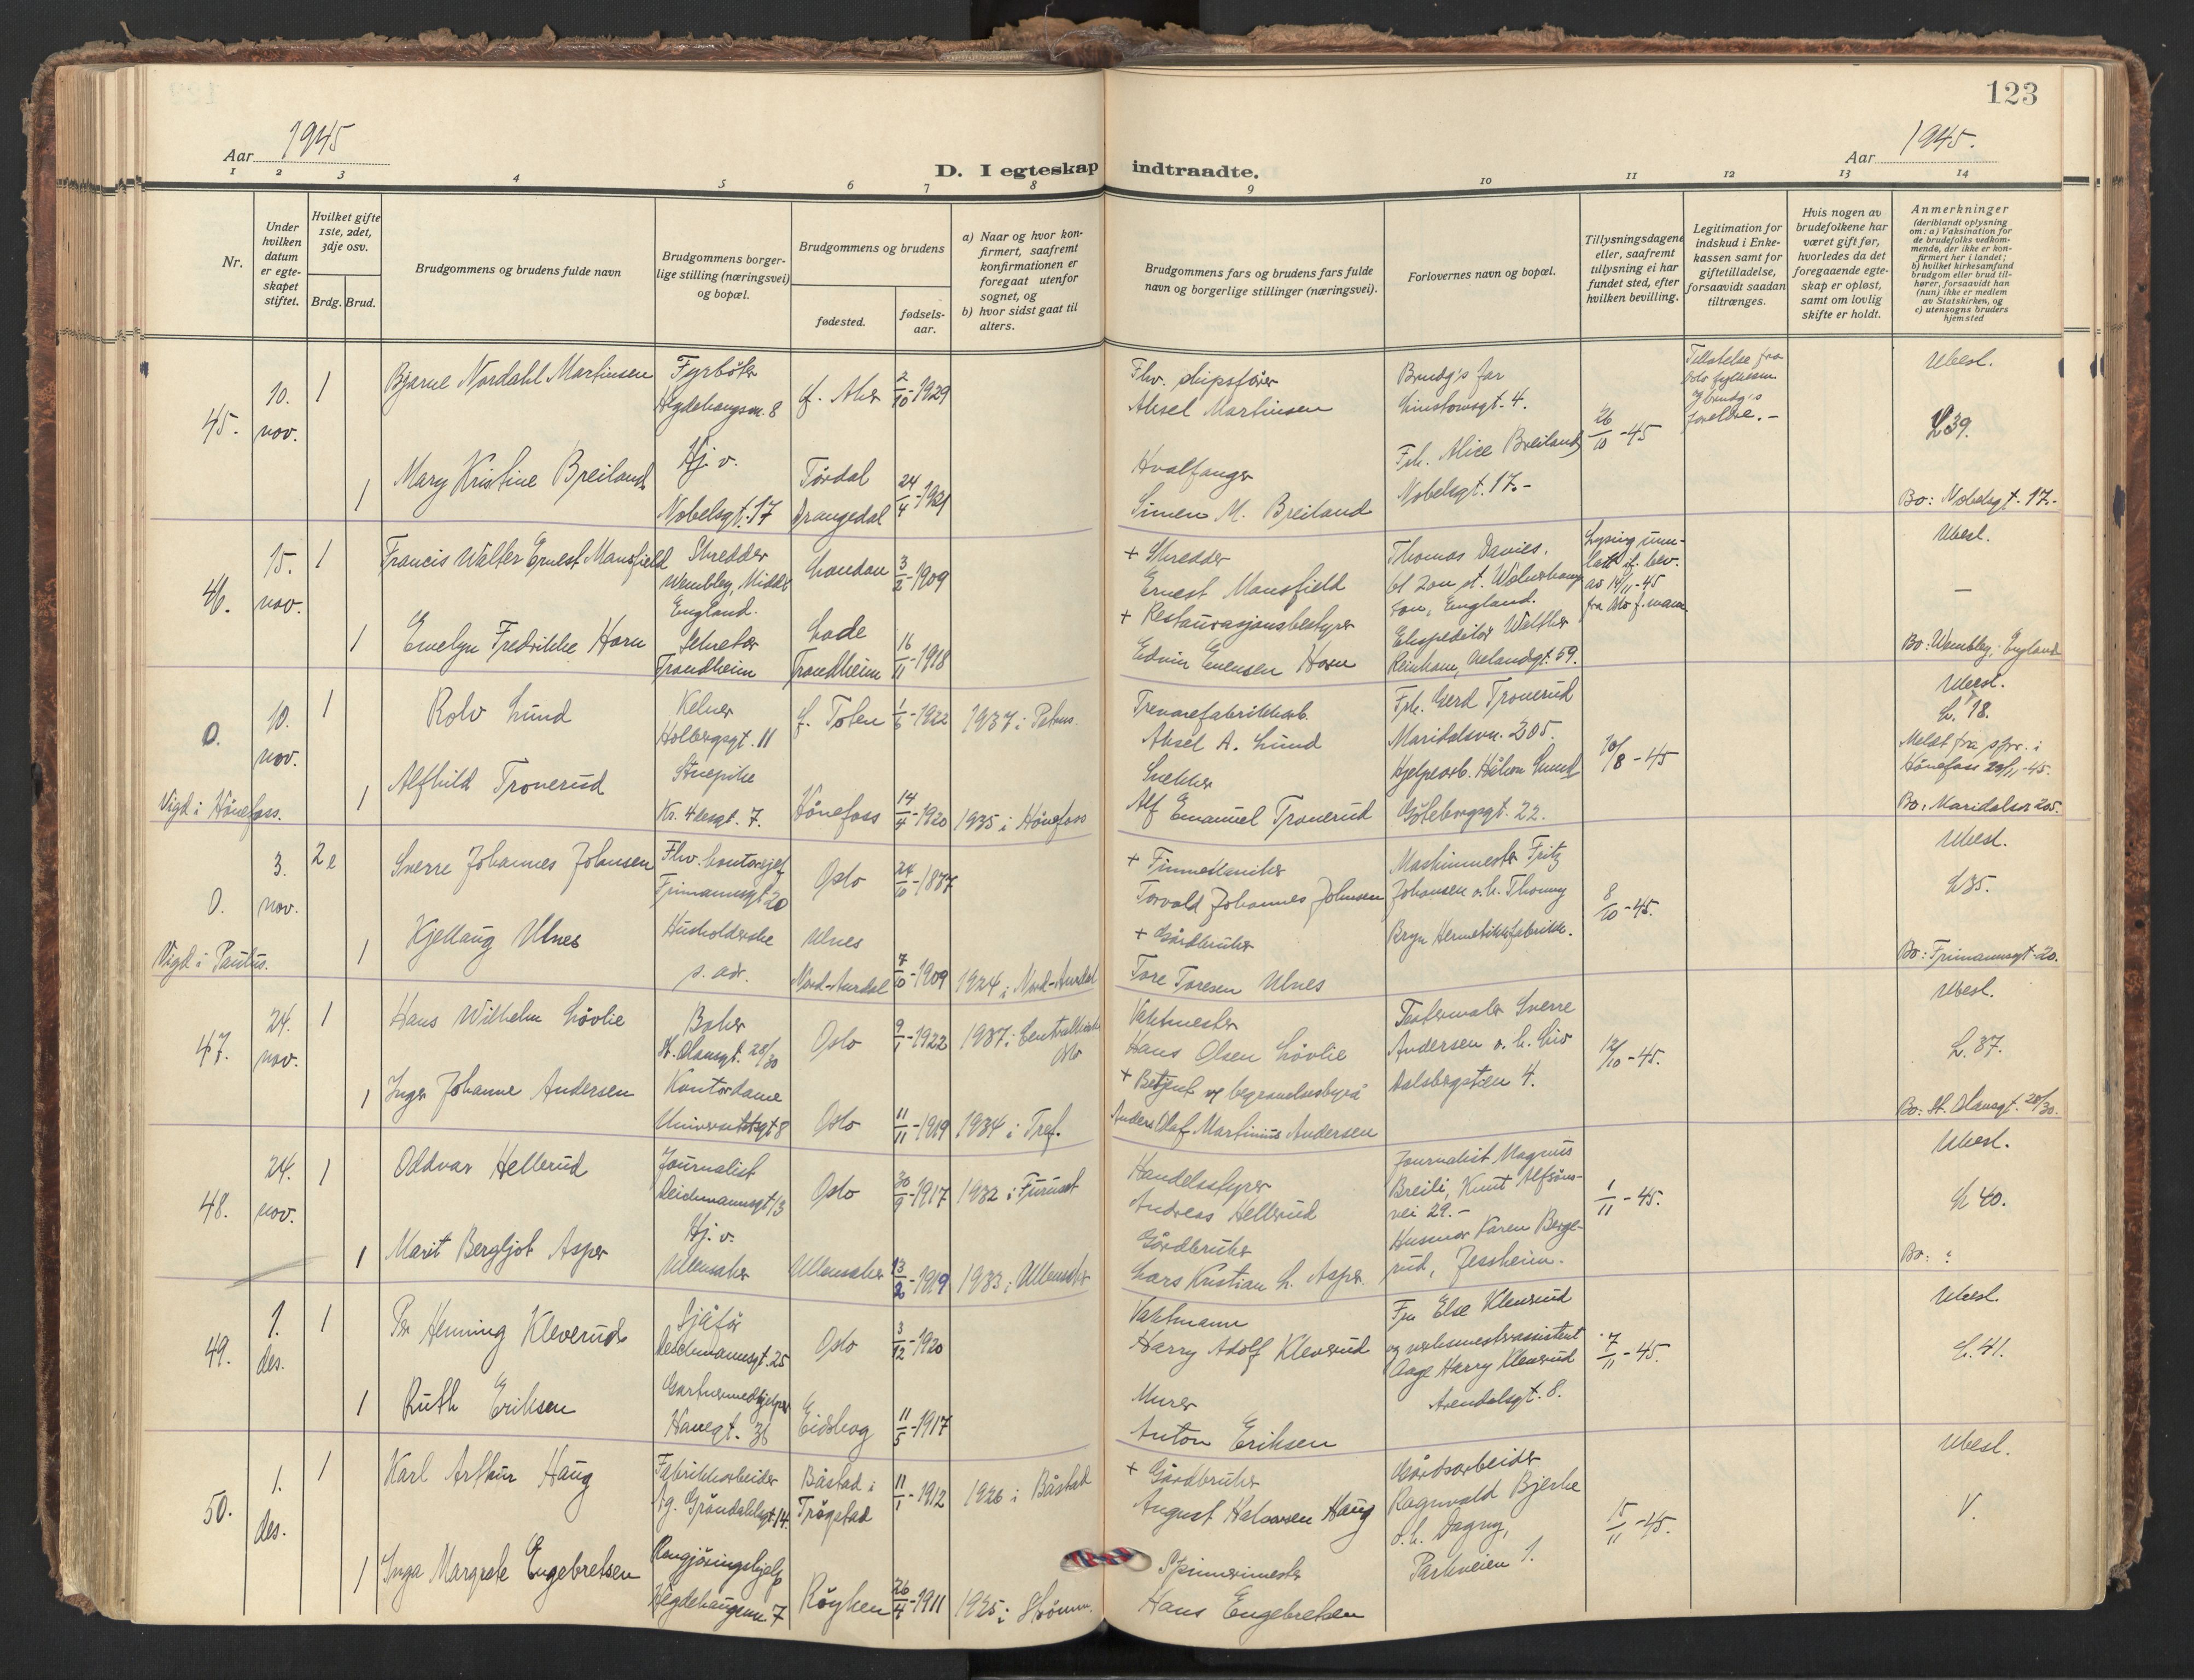 123
Aar 1945
Aar 1945.
D. I egteskap indtraadte.
1 2 3 4 5 6 7 8 9 10 11 12 13 14
Nr.
Under
hvilken
datum
er egte-
skapet
stiftet.
Hvilket gifte
1ste, 2det,
3dje osv.
Brdg. Brud.
Brudgommens og brudens fulde navn
Brudgommens borger-
lige stilling (næringsvei)
og bopæl.
Brudgommens og brudens
fødested.
fødsels-
aar.
a) Naar og hvor kon-
firmert, saafremt
konfirmationen er
foregaat utenfor
sognet, og
b) hvor sidst gaat til
alters.
Brudgommens fars og brudens fars fulde
navn og borgerlige stillinger (næringsvei).
Forlovernes navn og bopæl.
Tillysningsdagene
eller, saafremt
tillysning ei har
fundet sted, efter
hvilken bevilling.
Legitimation for
indskud i Enke-
kassen samt for
giftetilladelse,
forsaavidt saadan
tiltrænges.
Hvis nogen av
brudefolkene har
været gift før,
hvorledes da det
foregaaende egte-
skap er opløst,
samt om lovlig
skifte er holdt.
Anmerkninger
(deriblandt oplysning
om: a) Vaksination for
de brudefolks vedkom-
mende, der ikke er kon-
firmert her i landet;
b) hvilket kirkesamfund
brudgom eller brud til-
hører, forsaavidt han
(hun) ikke er medlem
av Statskirken, og
c) utensogns bruders
hjemsted
45.
10.
nov.
1
Bjarne Nordahl Martinsen
Fyrbøter
Hegdehaugsvn. 8
V. Aker
2/10-1929
Fhv. skipsfører
Aksel Martinsen
Brudg's far
Linstowsgt. 4.
26/10-45
Tillatelse fra
Oslo fylkesm.
og brudg's
foreldre.-
Ubesl.
L 39.
1
Mary Kristine Breiland
Hj. v.
Nobelsgt. 17
Tørdal
Drangedal
24/4-1921
Hvalfanger
Simen M. Breiland
Frk. Alice Breiland
Nobelsgt. 17.-
Bo: Nobelsgt. 17.-
46.
15.
nov.
1
Francis Walter Ernest Mansfield
Skredder
Wembley, Middx
England.
London
3/2-1909
+ Skredder
Ernest Mansfield
Thomas Davies.
England.
Lysing unn-
latt if. bev.
av 14/11-45
Ubesl.
1
Evelyn Fredrikke Horn
Sekretær
Trondheim
Lade
Trondheim
16/11-1918
+ Restaurasjonsbestyrer
Edvin Evensen Horn
Ekspeditør Walther
Reinham, Uelandsgt. 59.
Bo: Wembley, England
0.
10.
nov.
1
Rolv Lund
Kelner
Holbergsgt. 11
Ø. Toten
1/6-1922
1937 i Petrus.
Trevarefabrikkarb.
Aksel A. Lund
Frk. Gerd Tronerud
Maridalsvn. 205.
10/8-45
Ubesl.
L. 18.
Meldt fra spr. i
Hønefoss 20/11-45.
Vigd i Hønefoss.
1
Alfhild Tronerud
Stuepike
Kr. 4desgt. 7.
Hønefoss
14/4-1920
1935 i Hønefoss
Snekker
Alf Emanuel Tronerud
Hjelpearb. Håkon Lund
Göteborggt. 22.
Bo: Maridalsvn 205.
0.
3.
nov.
2e
Sverre Johannes Johnsen
Fhv. kontorsjef
Frimannsgt 20
Oslo
+ Finmekaniker
Torvald Johannes Johnsen
Maskinmester Fritz
Johansen o. h. Thonny
Bryn Hermetikkfabrikk.
8/10-45.
Ubesl.
L 35.
Vigd i Paulus.
1
Kjellaug Ulnes
Husholderske
s. adr.
Ulnes
Nord-Aurdal
7/10-1909
1924 i Nord-Aurdal
+ Gårdbruker
Tore Toresen Ulnes
Bo: Frimannsgt. 20.
47.
24.
nov.
1
Hans Wilhelm Løvlie
Baker
St. Olavsgt. 28/30
Oslo
9/1-1922
1937 i Centralkirk
Oslo
Vaktmester
Hans Olsen Løvlie
Teatermaler Sverre
Andersen o. h. Liv
Dalsbergstien 4.
12/10-45.
Ubesl.
L. 37.
1
Inger Johanne Andersen
Kontordame
Universitetsgt 8
Oslo
11/11-1919
1934 i Tref.
+ Betjent v/ begravelsesbyrå
Anders Olaf Martinius Andersen
Bo: St. Olavsgt. 28/30.
48.
24.
nov.
1
Oddvar Hellerud
Journalist
Deichmannsgt 13
Oslo
30/9-1917
1932 i Furuset
Handelsstyrer
Andreas Hellerud
Journalist Magnus
Breili, Knut Alfsøns-
vei 29.-
1/11-45.
Ubesl.
L 40.
1
Marit Bergljot Asper
Hj. v.
Ullensaker
Ullensaker
13/2-1919
1933 i Ullensaker
Gårdbruker
Lars Kristian L. Asper.
Husmor Karen Berge-
rud, Jessheim.
Bo: :
49.
1.
des.
1
Per Henning Kleverud
Sjåfør
Deichmannsgt. 25
Oslo
3/12-1920
Vaktmann
Harry Adolf Kleverud
Fru Else Kleverud
og verksmesterassistent
Aage Harry Kleverud
Arendalsgt. 8.
7/11-45.
Ubesl.
L. 41.
1
Ruth Eriksen
Gartnermedhjelper
Eidskog
11/5-1917
Murer
Anton Eriksen
50.
1.
des.
1
Karl Arthur Haug
Fabrikkarbeider
Ag. Grøndahlsgt 14.
Båstad i
Trøgstad
11/1-1912
1926 i Båstad
+ Gårdbruker
August Halvorsen Haug
Gårdsarbeider
Ragnvald Bjerke
o. h. Dagny,
Parkveien 1.
15/11-45.
Ubesl.
V.
1
Inga Margrete Engebretsen
Rengjøringshjelp
Hegdehaugsvn 7
Røyken
26/4-1911
Spinnerimester
Hans Engebretsen